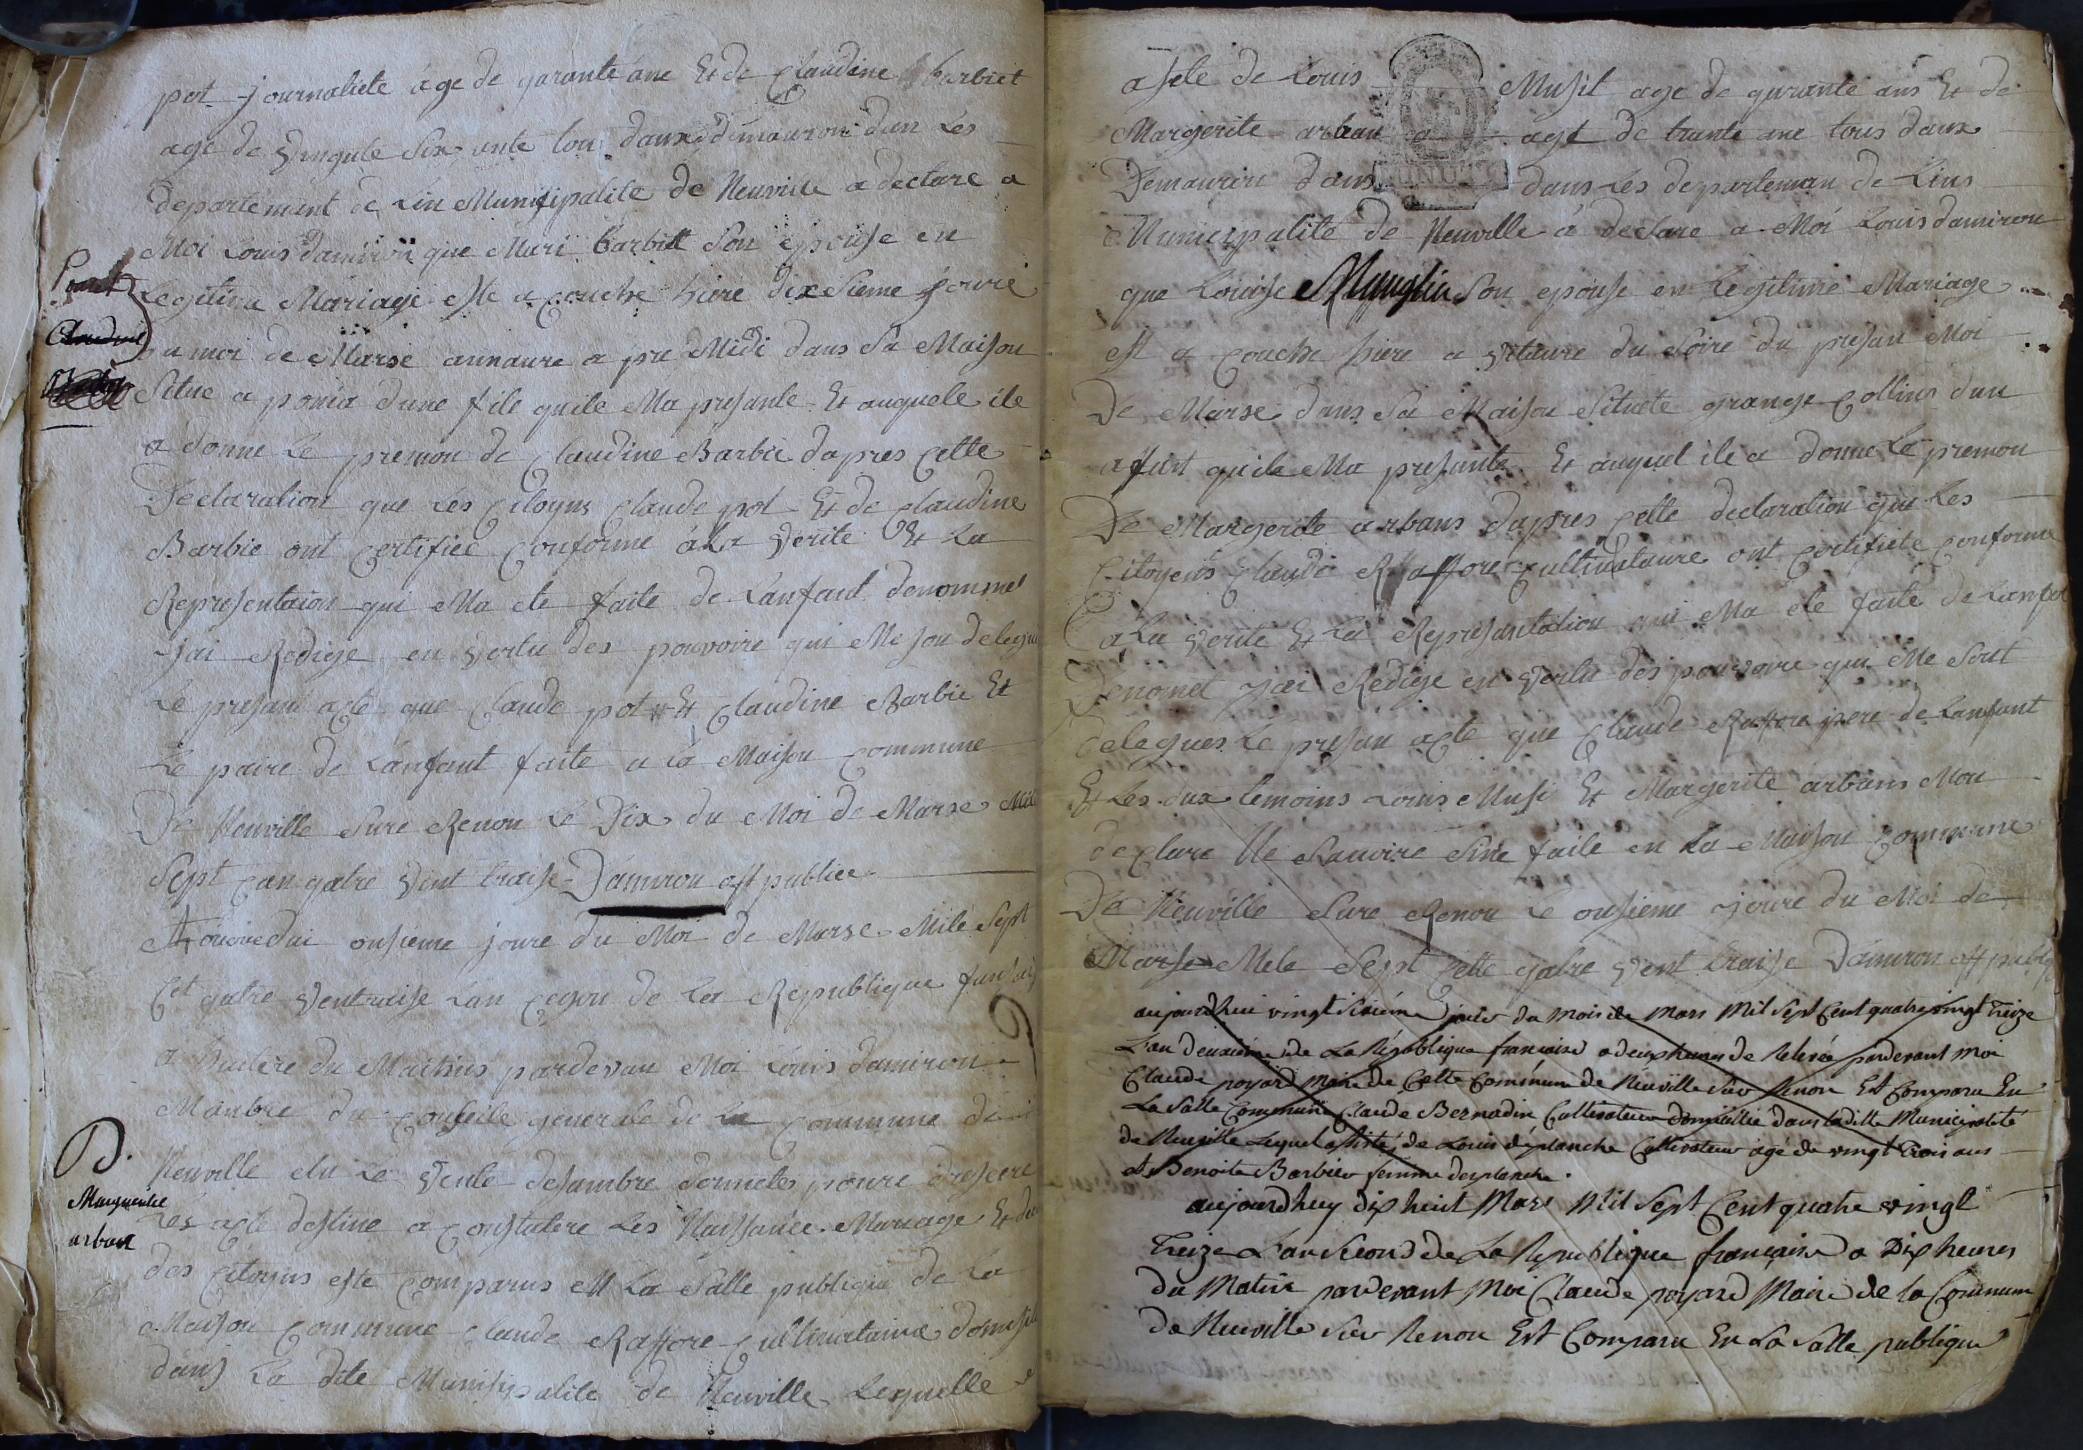 pot journaliete age de garante ane Et de Claudine barbiet
age de vingute Six ante tou daux dimauron dan Les
departement de Lin Munisipalite de Neuville a declare a
Moi Louis damiron que Mari barbitt Son epouse en
Pouret
Legitime Mariage este a couche hiere dixsieme joure
Claudine
du moi de Marse annaure a pre Midi dans Sa Maison
Situe a ponia dune file quile Ma presante Et auquele ile
a donne Le premon de Claudine Barbie dapres Cette
Declaration que Les Citoyns Claude pot Et de Claudine
Barbie ont Certifiee Conforme a La verite Et La
Representaion qui Ma ete faite de Lanfant denommel
jai Redige en vertu des pouvoire qui Me son delegue
Le presant acte que Claude pot Et Claudine Barbie Et
Le paire de Lanfant faite a La Maison Commune
De Neuville Sure Renon Le Dix du Moi de Marse Mile
Sept Can gatre vint traise Damiron off publice
Aujouredui onsieme joure du Moi de Marse Mile Sept
Cet gatre ventraise Lan Cegon de La Republique fansais
a huitere du Mathins pardevan Moi Louis damiron
Manbre du Conseile generale de La Commune de
D.
Neuville elu Le vente desambre dernietes poure dresere
Marguerite
arban
Les acte destine a Constatere Les Naissance Mariage Et de
des Citoyns este Comparus en La Salle publique de La
Maison Commune Claude Raffore Cultivataire domisile
dans La dite Munisipalite de Neuville Lequelle
asele de Louis Musit age de garante ans Et de
Margerite arban age de trante ane tous daux
Demauran dans dans Les departeman de Lins
Munisipalite de Neuville a declare a Moi Louis damiron
que Louise Mangliu Son epouse en Legitime Mariage
est a couche hiere a vitaure du Soire du presan Moi
De Marse dans Sa Maison Situete grange Collins dun
affant quile Ma presante Et auquel ile a donne Le premon
De Margerite arbans dapres Cette declaration que Les
Citoyens Claude Raffore Cultivataure ont Certifiete Conforme
a La verite Et La Represantation qui Ma ete faite de Lanfan
Denomet jai Redige en vertu des pouvoire qui Me Sont
delegues Le presan acte que Claude Raffore pere de Lanfant
Et Les dux temoins Louis Musi Et Margerite arbans Mon
declare Ne Savoire Sine faite en La Maison Commune
De Neuville Sure Renon Le onsieme joure du Moi de
Marse Mele Sept Cette gatre vent traise Damiron off public
aujourdhui vingt Sixiéme jour du mois de mars Mil Sept Cent quatre vingt Treize
L'an deuxiéme de La République francaise a deux heures de Relevée pardevant moi
Claude poyard Maire de Cette Commune de Neuville Sur Renon Est Comparu En
La Salle Commune Claude Bernadin Cultivateur Domicillié dans la ditte Municipalité
de Neuville Lequel assisté de Louis déplanche Cultivateur agé de vingt trois ans
et Benoite Barbier femme desplanche.
aujourdhuy dix huit Mars Mil Sept Cent quatre vingt
Treize L'an Second de La République francaise a Dix heures
du Matin pardevant Moi Claude poyard Maire de la Commune
de Neuville Sur Renon Est Comparu En La Salle publique